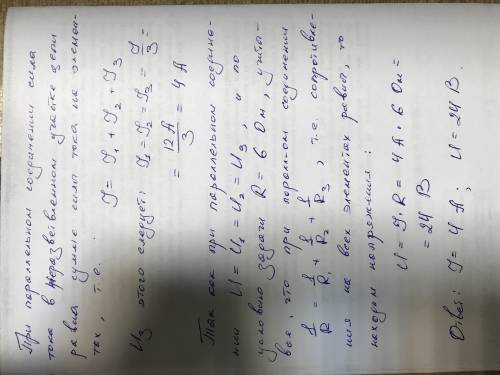 При параллельном соединении сила
тока в неразветвленном участке цепи
равна сумме силы тока на элемен-
тах, т.е. : J = J₁ + J₂ + J₃
Из этого следует: J₁ = J₂ = J₃ = J/3 =
= 12 А/3 = 4 А
Так как при параллельном соедине-
нии U = U₁ = U₂ = U₃, и по
условию задачи R = 6 Ом, учиты-
вая, что при парал-ом соединении
1/R = 1/R₁ + 1/R₂ + 1/R₃, т.е. сопротивле-
ния на всех элементах равны, то
находим напряжения:
U = J • R = 4 А • 6 Ом =
= 24 В
Ответ: J = 4 А; U = 24 В.